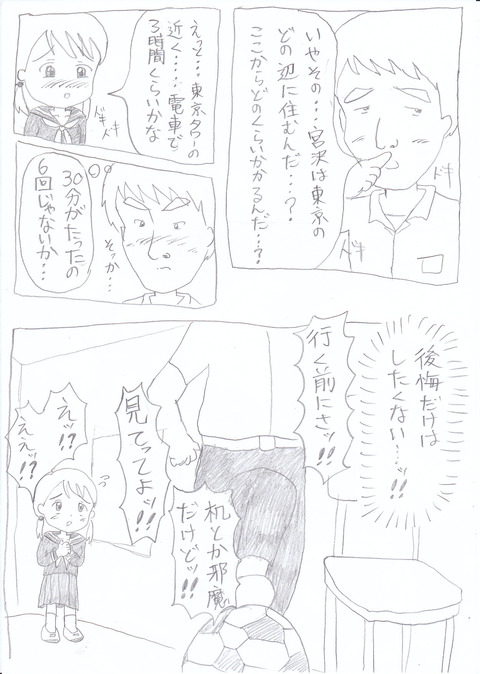 いやその・・・宮沢は東京の
どの辺に住むんだ・・・？
ここからどのくらいかかるんだ・・・？
ドキ
ドキ
えっと・・・東京タワーの
近く・・・・電車で
3時間くらいかな
ドキ
ドキ
30分がたったの
6回じゃないか・・
そっか・・・
後悔だけは
したくない・・・ッ!!
行く前にさッ!!
見てってよッ!!
机とか邪魔
だけどッ!!
えッ!?
ええッ!?